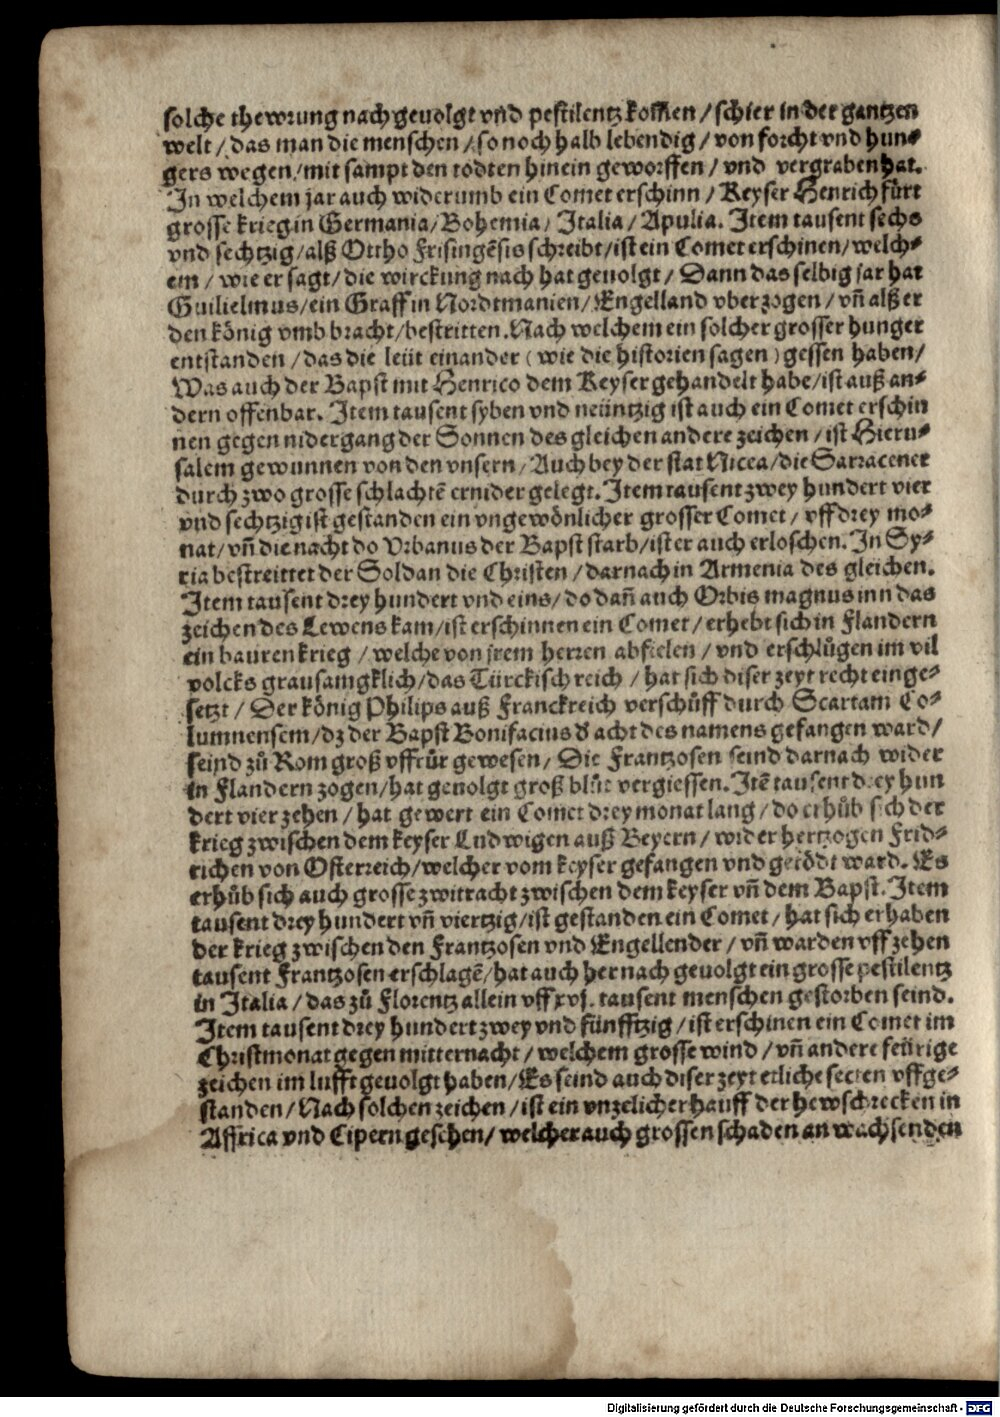 solche thewrung nach geuolgt vnd pestilentz kom̃en / schier in der gantzen
welt / das man die menschen / so noch halb lebendig / von forcht vnd hun⸗
gers wegen / mit sampt den todten hinein geworffen / vnd vergraben hat.
In welchem jar auch widerumb ein Comet erschinn / Keyser Henrich fürt
grosse krieg in Germania / Bohemia / Italia / Apulia. Item tausent sechs
vnd sechtzig / alß Ottho Frisingẽsis schreibt / ist ein Comet erschinen / welch⸗
em / wie er sagt / die wirckung nach hat geuolgt / Dann das selbig jar hat
Guilielmus / ein Graff in Nordtmanien / Engelland vberzogen / vñ alß er
den könig vmb bracht / bestritten. Nach welchem ein solcher grosser hunger
entstanden / das die leüt einander ( wie die historien sagen ) gessen haben /
Was auch der Bapst mit Henrico dem Keyser gehandelt habe / ist auß an⸗
dern offenbar. Item tausent syben vnd neüntzig ist auch ein Comet erschin
nen gegen nidergang der Sonnen des gleichen andere zeichen / ist Hieru⸗
salem gewunnen von den vnsern / Auch bey der stat Nicea / die Sarracener
durch zwo grosse schlachtẽ ernider gelegt. Item tausent zwey hundert vier
vnd sechtzig ist gestanden ein vngewönlicher grosser Comet / vff drey mo⸗
nat / vñ die nacht do Vrbanus der Bapst starb / ist er auch erloschen. In Sy⸗
ria bestreittet der Soldan die Christen / darnach in Armenia des gleichen.
Item tausent drey hundert vnd eins / do dañ auch Orbis magnus inn das
zeichen des Lewens kam / ist erschinnen ein Comet / erhebt sich in Flandern
ein bauren krieg / welche von jrem herren abfielen / vnd erschlůgen im vil
volcks grausamgklich / das Türckisch reich / hat sich diser zeyt recht einge⸗
setzt / Der könig Philips auß Franckreich verschůff durch Scartam Co⸗
lumnensem / dz der Bapst Bonifacius d̕ acht des namens gefangen ward /
seind zů Rom groß vffrůr gewesen / Die Frantzosen seind darnach wider
in Flandern zogen / hat geuolgt groß blůt vergiessen. Itẽ tausent drey hun
dert vierzehen / hat gewert ein Comet drey monat lang / do erhůb sich der
krieg zwischen dem keyser Ludwigen auß Beyern / wider hertzogen Frid⸗
richen von Osterreich / welcher vom keyser gefangen vnd getödt ward. Es
erhůb sich auch grosse zwitracht zwischen dem keyser vñ dem Bapst. Item
tausent drey hundert vñ viertzig / ist gestanden ein Comet / hat sich erhaben
der krieg zwischen den Frantzosen vnd Engellender / vñ warden vff zehen
tausent Frantzosen erschlagẽ / hat auch hernach geuolgt ein grosse pestilentz
in Italia / das zů Florentz allein vff xvj. tausent menschen gestorben seind.
Item tausent drey hundert zwey vnd fünfftzig / ist erschinen ein Comet im
Christmonat gegen mitternacht / welchem grosse wind / vñ andere feürige
zeichen im lufft geuolgt haben / Es seind auch diser zeyt etliche secten vffge⸗
standen / Nach solchen zeichen / ist ein vnzelicher hauff der hewschrecken in
Affrica vnd Cipern gesehen / welcher auch grossen schaden an wachsenden
Digitalisierung gefördert durch die Deutsche Forschungsgemeinschaft - DFG